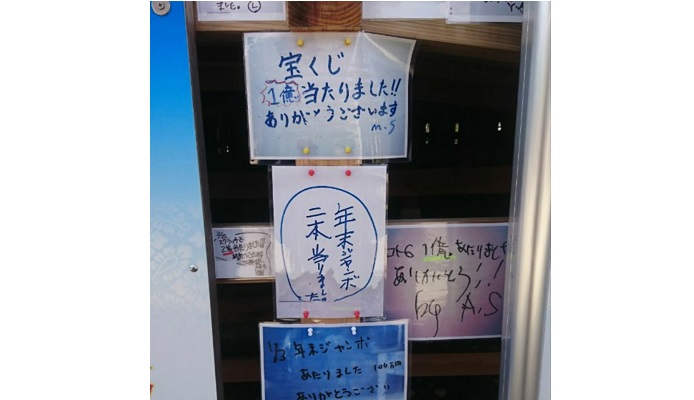 ました。
宝くじ
1億当たりました!!
ありがとうございます
M.S
年末ジャンボ
二本当りました!!
2等当たりました
ロト6 1億。あたりました
ありがとう!!
by A.S
1/3 年末ジャンボ
あたりました 100万円
ありがとうござい